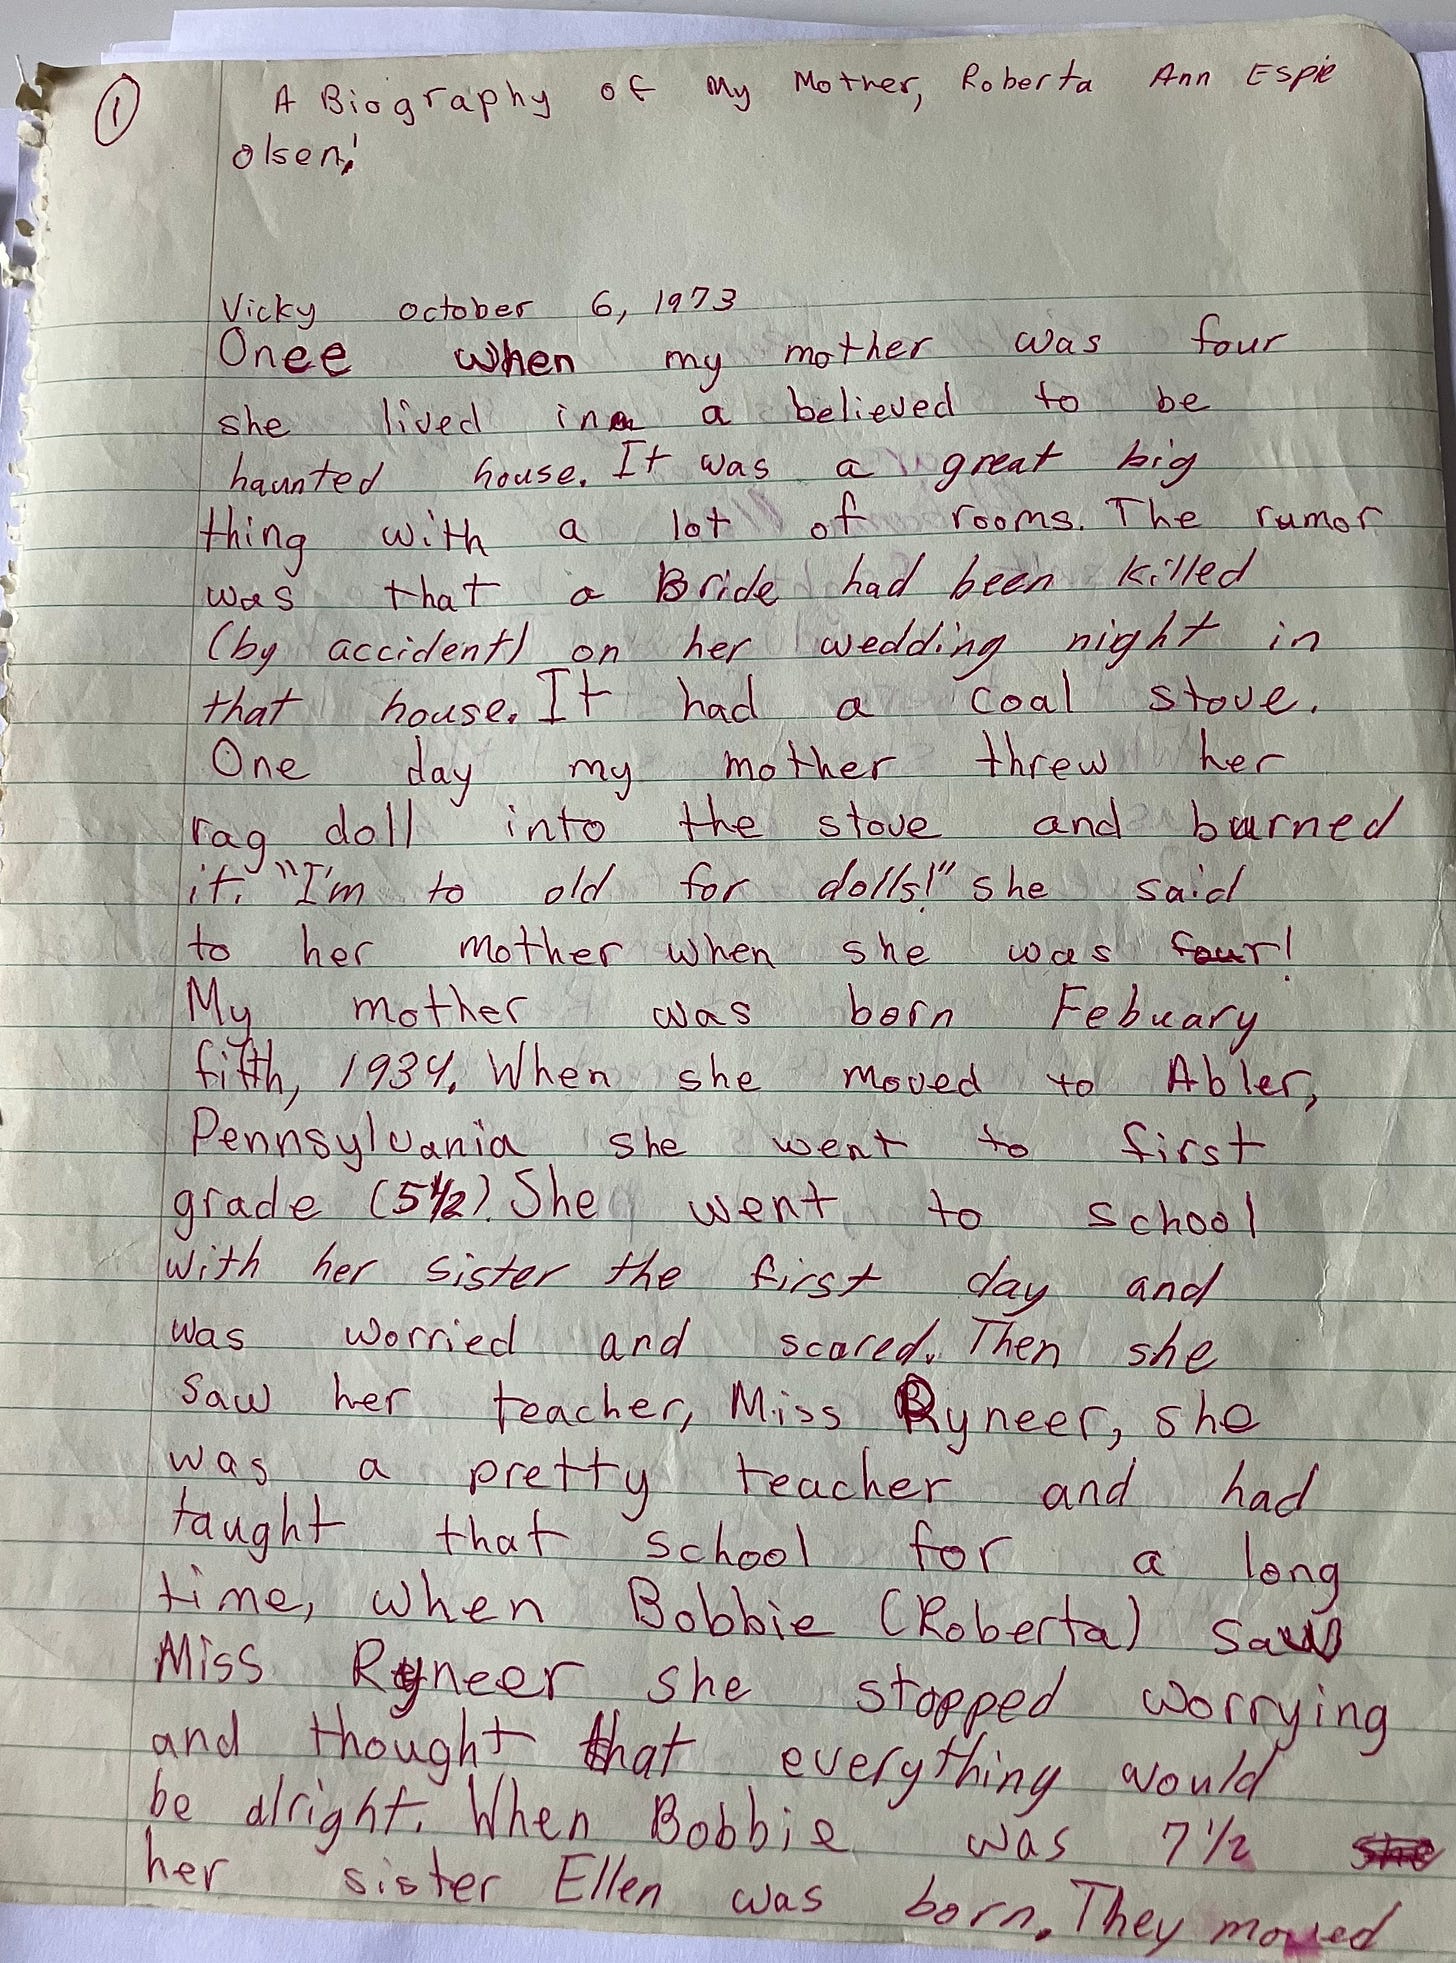 ① A Biography of My Mother, Roberta Ann Espie
Olsen!
Vicky October 6, 1973
Once when my mother was four
she lived in a believed to be
haunted house. It was a great big
thing with a lot of rooms. The rumor
was that a Bride had been killed
(by accident) on her wedding night in
that house. It had a coal stove.
One day my mother threw her
rag doll into the stove and burned
it. "I'm to old for dolls!" she said
to her mother when she was four!
My mother was born Febuary
fifth, 1934. When she moved to Abler,
Pennsylvania she went to first
grade (5 1/2). She went to school
with her sister the first day and
was worried and scared. Then she
saw her teacher, Miss Ryneer, she
was a pretty teacher and had
taught that school for a long
time, when Bobbie (Roberta) saw
Miss Ryneer she stopped worrying
and thought that everything would
be alright. When Bobbie was 7 1/2 she
her sister Ellen was born. They moved